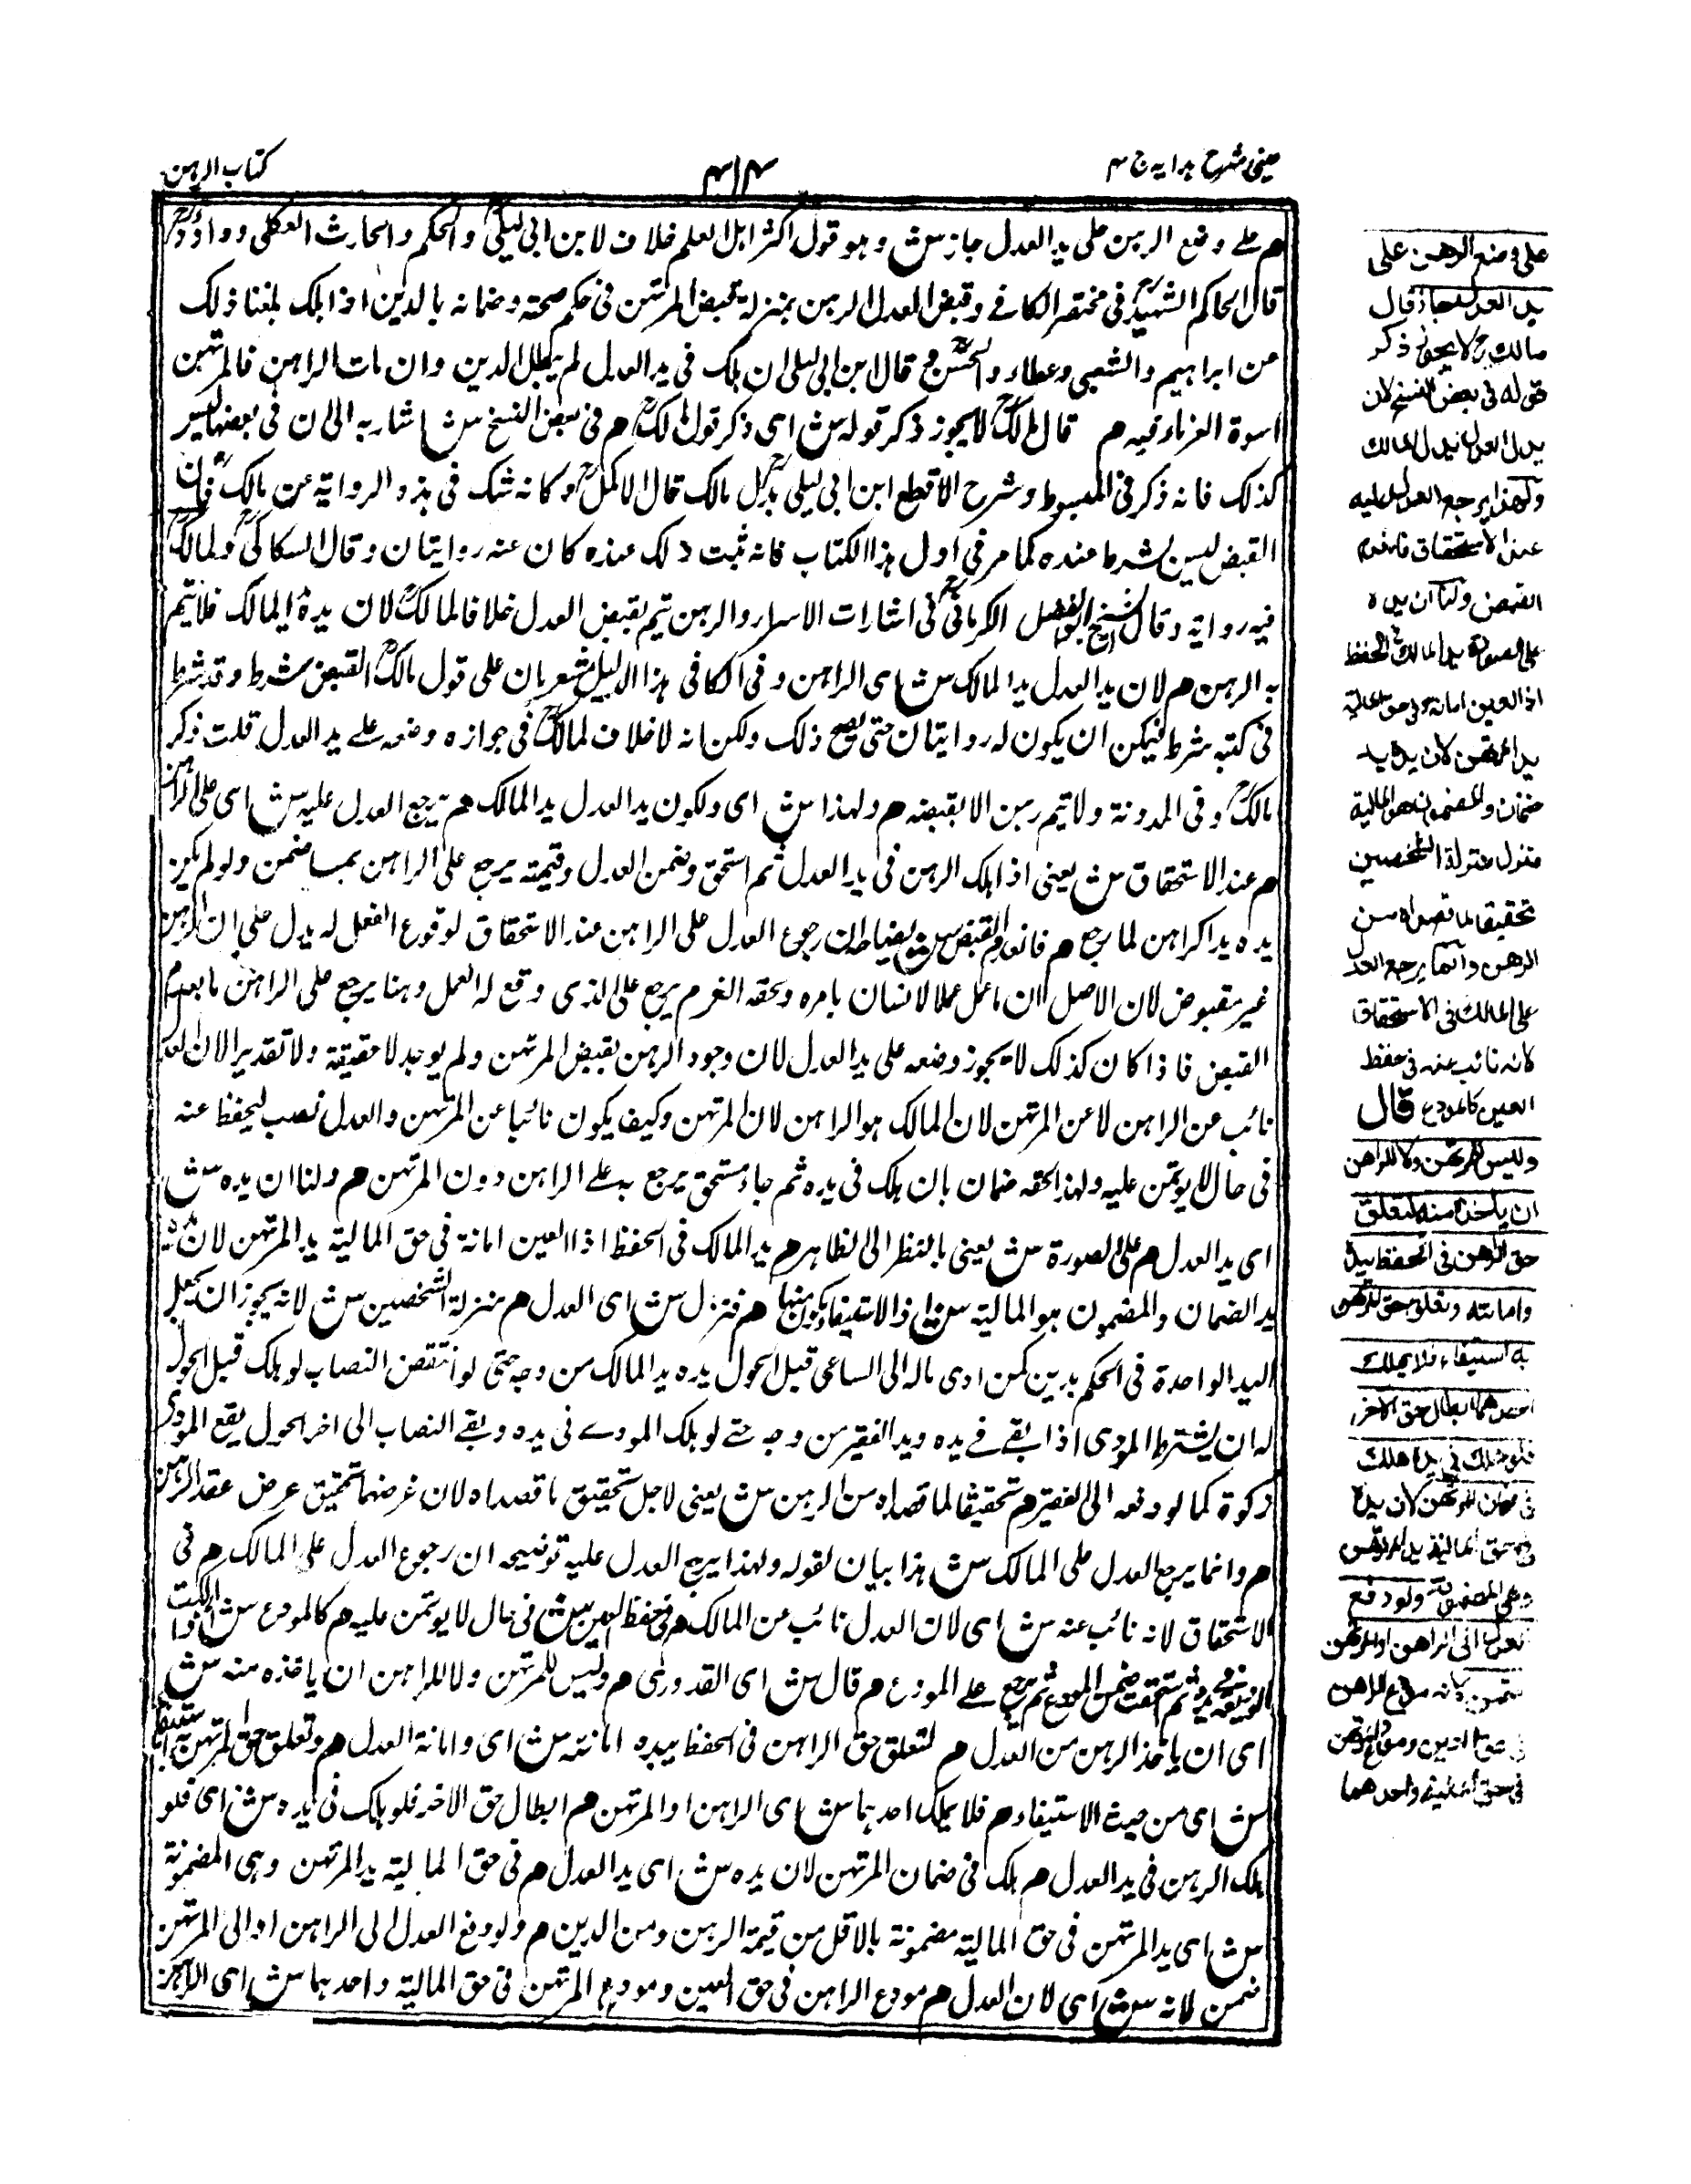 عینی شرح ہدایہ ج ۴
۴۱۴
کتاب الرہن
م علے وضع الرہن علی ید العدل جاز ش وہو قول اکثر اہل العلم خلاف لابن ابی لیلیٰ والحکم والحارث العکلی وداؤد
قال الحاکم الشہید فی مختصر الکافے وقبض العدل الرہن بمنزلۃ قبض المرتہن فی حکم صحتہ وضمانہ بالدین اذا ہلک بلغنا ذلک
من ابراہیم والشعبی وعطاء والحسن وقال ابن ابی لیلی ان ہلک فی ید العدل لم یبطل الدین وان مات الراہن فالمرتہن
اسوۃ الغرماء فیہ م قال مالک لا یجوز ذکر قولہ ش ای ذکر قول مالک م فی بعض النسخ ش اشار بہ الی ان فی بعضہا لیس
کذلک فانہ ذکر فی المبسوط وشرح الاقطع ابن ابی لیلی بدل مالک قال الاکمل وکانہ شک فی ہذہ الروایۃ عن مالک فان
القبض لیس بشرط عندہ کما مر فی اول ہذا الکتاب فانہ ثبت ذلک عندہ کان عنہ روایتان وقال السکاکی ولمالک
فیہ روایۃ وقال الشیخ ابو الفضل الکرمانی فی اشارات الاسرار والرہن یتم بقبض العدل خلافا لمالک لان یدہ ید المالک فلا یتم
بہ الرہن م لان ید العدل ید المالک ش ای الراہن وفی الکافی ہذا الدلیل یشعر بان علی قول مالک القبض شرط وقد شرط
فی کتبہ شرط فیمکن ان یکون لہ روایتان حتی یصح ذلک ولکن انہ لا خلاف لمالک فی جوازہ وضعہ علے ید العدل قلت ذکر
مالک وفی المدونۃ ولا یتم رہن الا بقبضہ م ولہذا ش ای ولکون ید العدل ید المالک م یرجع العدل علیہ ش ای علی الراہن
م عند الاستحقاق ش یعنی اذا ہلک الرہن فی ید العدل ثم استحق وضمن العدل وقیمتہ یرجع علی الراہن بما ضمن ولو لم یکن
یدہ ید الراہن لما رجع م فانعدم القبض ش ایضاحہ ان رجوع العدل علی الراہن عند الاستحقاق لوقوع الفعل لہ یدل علی ان الرہن
غیر مقبوض لان الاصل ان من عمل عملا لانسان بامرہ ولحقہ الغرم یرجع علی الذی وقع لہ العمل وہنا یرجع علی الراہن فانعدم
القبض فاذا کان کذلک لا یجوز وضعہ علی ید العدل لان وجود الرہن بقبض المرتہن ولم یوجد لا حقیقۃ ولا تقدیرا لان العدل
نائب عن الراہن لا عن المرتہن لان المالک ہو الراہن لان المرتہن وکیف یکون نائبا عن المرتہن والعدل نصب لیحفظ عنہ
فی حال لا یؤتمن علیہ ولہذا لحقہ ضمان بان ہلک فی یدہ ثم جاء مستحق یرجع بہ علے الراہن دون المرتہن م ولنا ان یدہ ش
ای ید العدل م علی الصورۃ ش یعنی بالنظر الی الظاہر م ید المالک فی الحفظ اذ العین امانۃ فی حق المالیۃ ید المرتہن لان یدہ
ید الضمان والمضمون ہو المالیۃ ش اذ الاستیفاء یکون منہا م فنزل ش ای العدل م منزلۃ الشخصین ش لانہ یجوز ان یجعل
الید الواحدۃ فی الحکم یدین کمن ادی مالہ الی الساعی قبل الحول یدہ ید المالک من وجہ حتی لو انتقض النصاب لو ہلک قبل الحول
لہ ان یسترد المؤدی اذا بقے فے یدہ وید الفقیر من وجہ حتے لو ہلک المودے فی یدہ وبقے النصاب الی اخر الحول یقع المودی
زکوۃ کما لو دفعہ الی الفقیر م تحقیقا لما قصداہ من الرہن ش یعنی لاجل تحقیق ما قصداہ لان غرضہما تحقیق غرض عقد الرہن
م وانما یرجع العدل علی المالک ش ہذا بیان لقولہ ولہذا یرجع العدل علیہ توضیحہ ان رجوع العدل علی المالک م فی
الاستحقاق لانہ نائب عنہ ش ای لان العدل نائب عن المالک م فی حفظ العین ش فی حال لا یؤتمن علیہ م کالمودع ش اذا ہلکت
الودیعۃ فی یدہ ثم استحقت ضمن المودع ثم یرجع علے المودع م قال ش ای القدوری م ولیس للمرتہن ولا للراہن ان یاخذہ منہ ش
ای ان یاخذ الرہن من العدل م لتعلق حق الراہن فی الحفظ بیدہ امانتہ ش ای وامانۃ العدل م وتعلق حق المرتہن بہ استیفاء
ش ای من حیث الاستیفاء م فلا یملک احدہما ش ای الراہن او المرتہن م ابطال حق الاخر فلو ہلک فی یدہ ش ای فلو
ہلک الرہن فی ید العدل م ہلک فی ضمان المرتہن لان یدہ ش ای ید العدل م فی حق المالیۃ ید المرتہن وہی المضمونۃ
ش ای ید المرتہن فی حق المالیۃ مضمونۃ بالاقل من قیمۃ الرہن ومن الدین م ولو دفع العدل الی الراہن او الی المرتہن
ضمن لانہ ش ای لان العدل م مودع الراہن فی حق العین ومودع المرتہن فی حق المالیۃ واحدہما ش ای الراہن
علی وضع الرهن علی
ید العدل جاز قال
مالك لا یجوز ذکر
قوله فی بعض النسخ لان
ید العدل ید المالك
ولهذا یرجع العدل علیه
عند الاستحقاق فانعدم
القبض ولنا ان یده
علی الصورة ید المالك فی الحفظ
اذ العین امانة وفی حق المالیة
ید المرتهن لان یده ید
ضمان والمضمون هو المالیة
فنزل منزلة الشخصین
تحقیقا لما قصداه من
الرهن وانما یرجع العدل
علی المالك فی الاستحقاق
لانه نائب عنه فی حفظ
العین کالمودع قال
ولیس للمرتهن ولا للراهن
ان یاخذه منه لتعلق
حق الراهن فی الحفظ بیده
وامانته وتعلق حق المرتهن
به استیفاء فلا یملك
احدهما ابطال حق الاخر
فلو هلك فی یده هلك
فی ضمان المرتهن لان یده
فی حق المالیة ید المرتهن
وهی المضمونة ولو دفع
العدل الی الراهن او المرتهن
ضمن لانه مودع الراهن
فی حق العین ومودع المرتهن
فی حق المالیة واحدهما